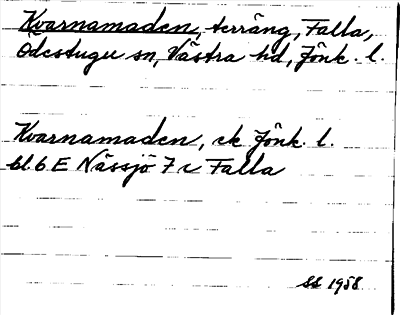 Kvarnamaden, terräng, Falla,
Ödestugu sn, Västra hd, Jönk. l.
Kvarnamaden, ek Jönk. l.
bl. 6 E Nässjö 7 c Falla
SS 1958